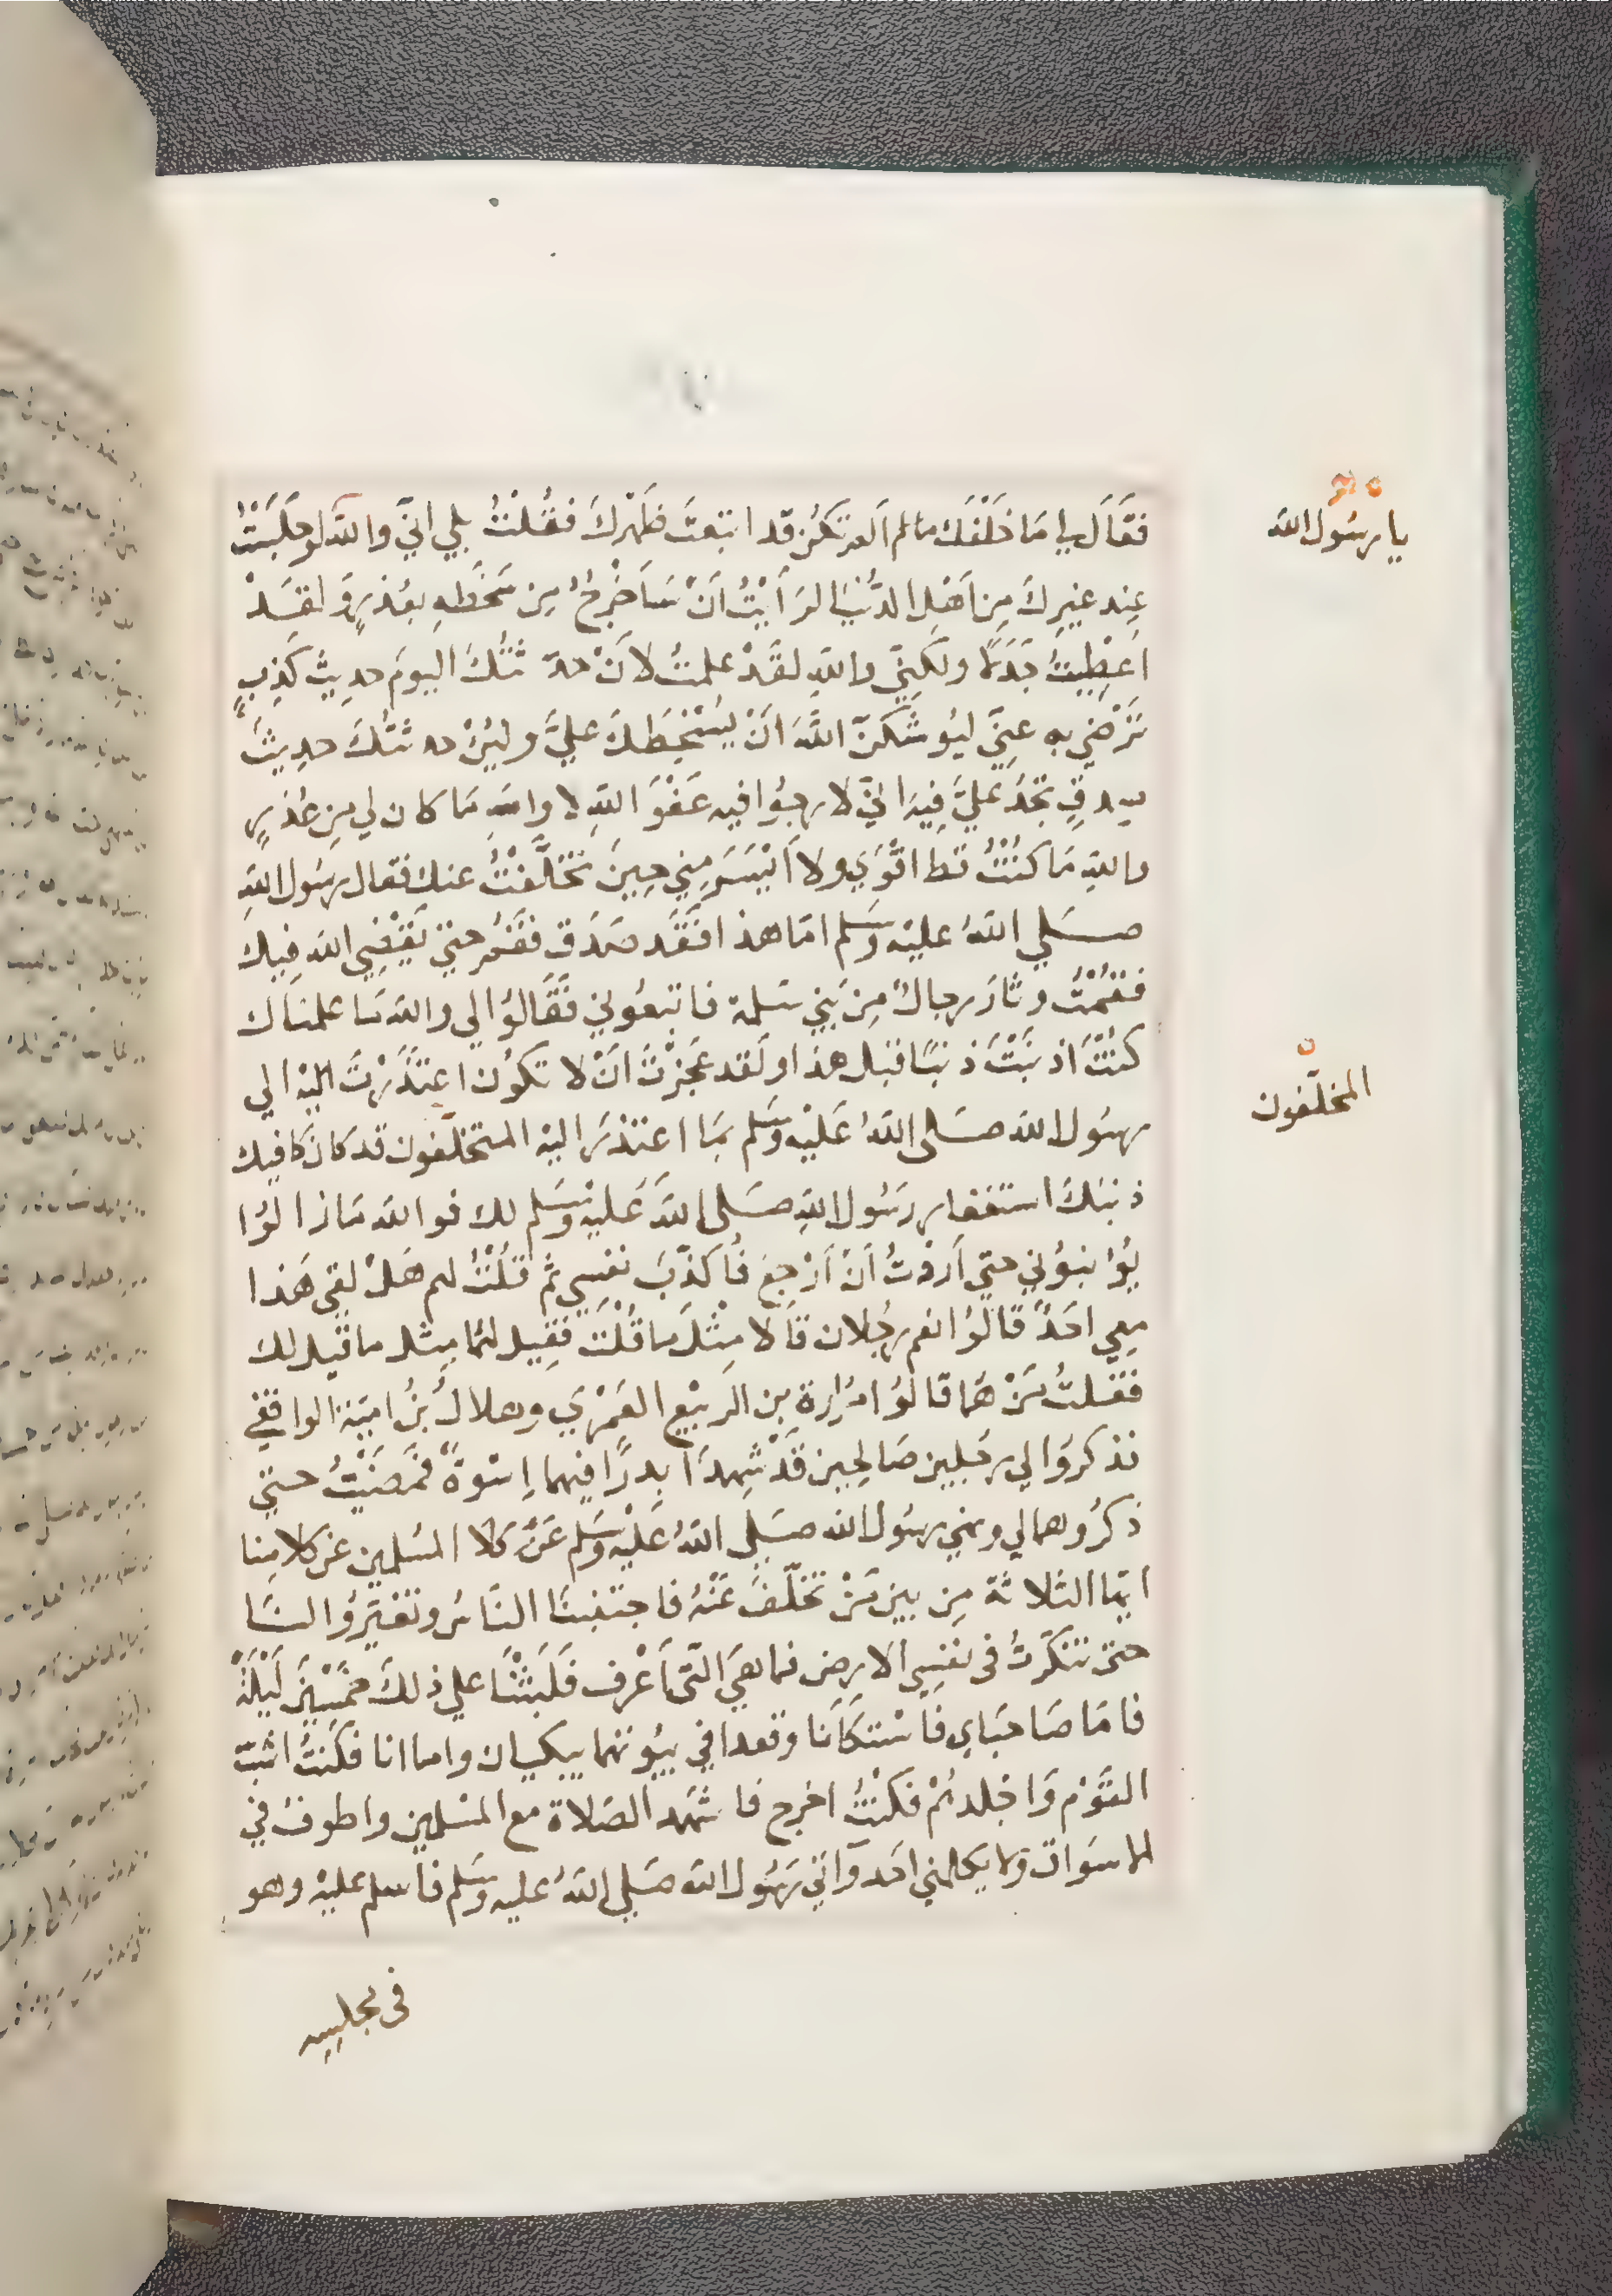 فَقَالَ لي مَا خَلَّفَكَ مالم اَلم تكُن قد ابتعتَ ظَهْرَكَ فَقُلْتُ بلي اني والله لو جَلَسْتُ
عِند غيرِكَ مِن اَهْلِ الدُّنيَا لرَأيْتُ اَنْ سَاَخْرُجُ مِن سَخَطِهِ بعُذرٍ وَلقَدْ
اُعْطِيتُ جَدَلًا ولكِنّي والله لقَدْ علمتُ لاَنْ حدّثتُكَ اليومَ حديثَ كَذِبٍ
تَرْضي به عنِّي ليُوشكَنَّ اللهُ اَنْ يُسْخِطَكَ عليَّ ولئِنْ حدثتُكَ حديثَ
صدقٍ تجدُ عليَّ فِيه انّي لارجوُا فيه عَفْوَ اللهِ لا والله مَا كان لي مِن عُذرٍ
والله مَا كنُتُ قط اقْوَي ولا اَيْسَرَ مِني حِينَ تَخَلَّفتُ عنك فقال رسُول اللهِ
صَلي اللهُ عليْه وسَلم امّا هذا فَقَد صَدَق فقُم حتي يَقْضِي الله فِيك
فقُمْتُ وثارَ رجالٌ مِن بَنِي سَلمة فاتبعُوني فَقَالوُا لي والله مَا علمنَاك
كنُتْ اَذنبْتَ ذنبًا قبل هذا ولَقد عَجزْتَ اَنْ لا تكوُن اعتَذَرْتَ اليْه الي
رسُول الله صَلى اللهُ عَليْه وسَلم بمَا اعتذَرَ اليْه المتخلّفون قد كانَ كَافيك
ذنبَكَ استغفار رسُول اللهِ صَلى اللهُ عَليْه وسَلم لك فوالله مَا زالوُا
يُؤنبوُني حتي اَردتُ اَنْ اَرْجِعَ فأُكذّبَ نفسِي ثم قُلْتُ لهم هَلْ لقي هَذا
معِي احَدٌ قالوُا نعم رجُلان قَالا مِثْلَ ما قُلْتَ فقِيل لهُما مِثل ما قيل لك
فقلتُ مَنْ هُما قالوُا مُرَارة بن الربيْع العَمْرِيّ وهلالُ بنُ اميّة الواقفي
فذكروَا لي رجُلين صَالحِين قَدْ شهِدَا بدرًا فيهما اِسْوةٌ فمَضيْتُ حتي
ذكرُوهما لي ونهي رسُول الله صَلي اللهُ عَليْه وسَلم عَنْ كلا المسُلمين عن كلامِنا
ايّها الثلاثة مِن بين مَنْ تخلّفَ عَنْهُ فاجتنبنَا النّاسُ وتغيّروُا لنَا
حتى تنكّرتْ فى نفسِي الارض فما هيَ التي اَعْرف فَلَبثْنَا علي ذلكَ خمْسِينَ لَيْلَةً
فامّا صَاحبَاي فَاسْتكَانَا وقعدا في بيُوتهما يبكيان واما انا فكنْتُ اشبّ
القوْم وَاجْلدهُم فكنتُ اخرج فاشهَد الصَلاة مع المسْلمين واطوفُ في
الاسوَاق ولا يكلمني احَد وآتي رَسُول الله صَلي اللهُ عليه وسَلم فاسلم عليْه وهو
في مجلسِه
يا رسُول الله
المخلّفون